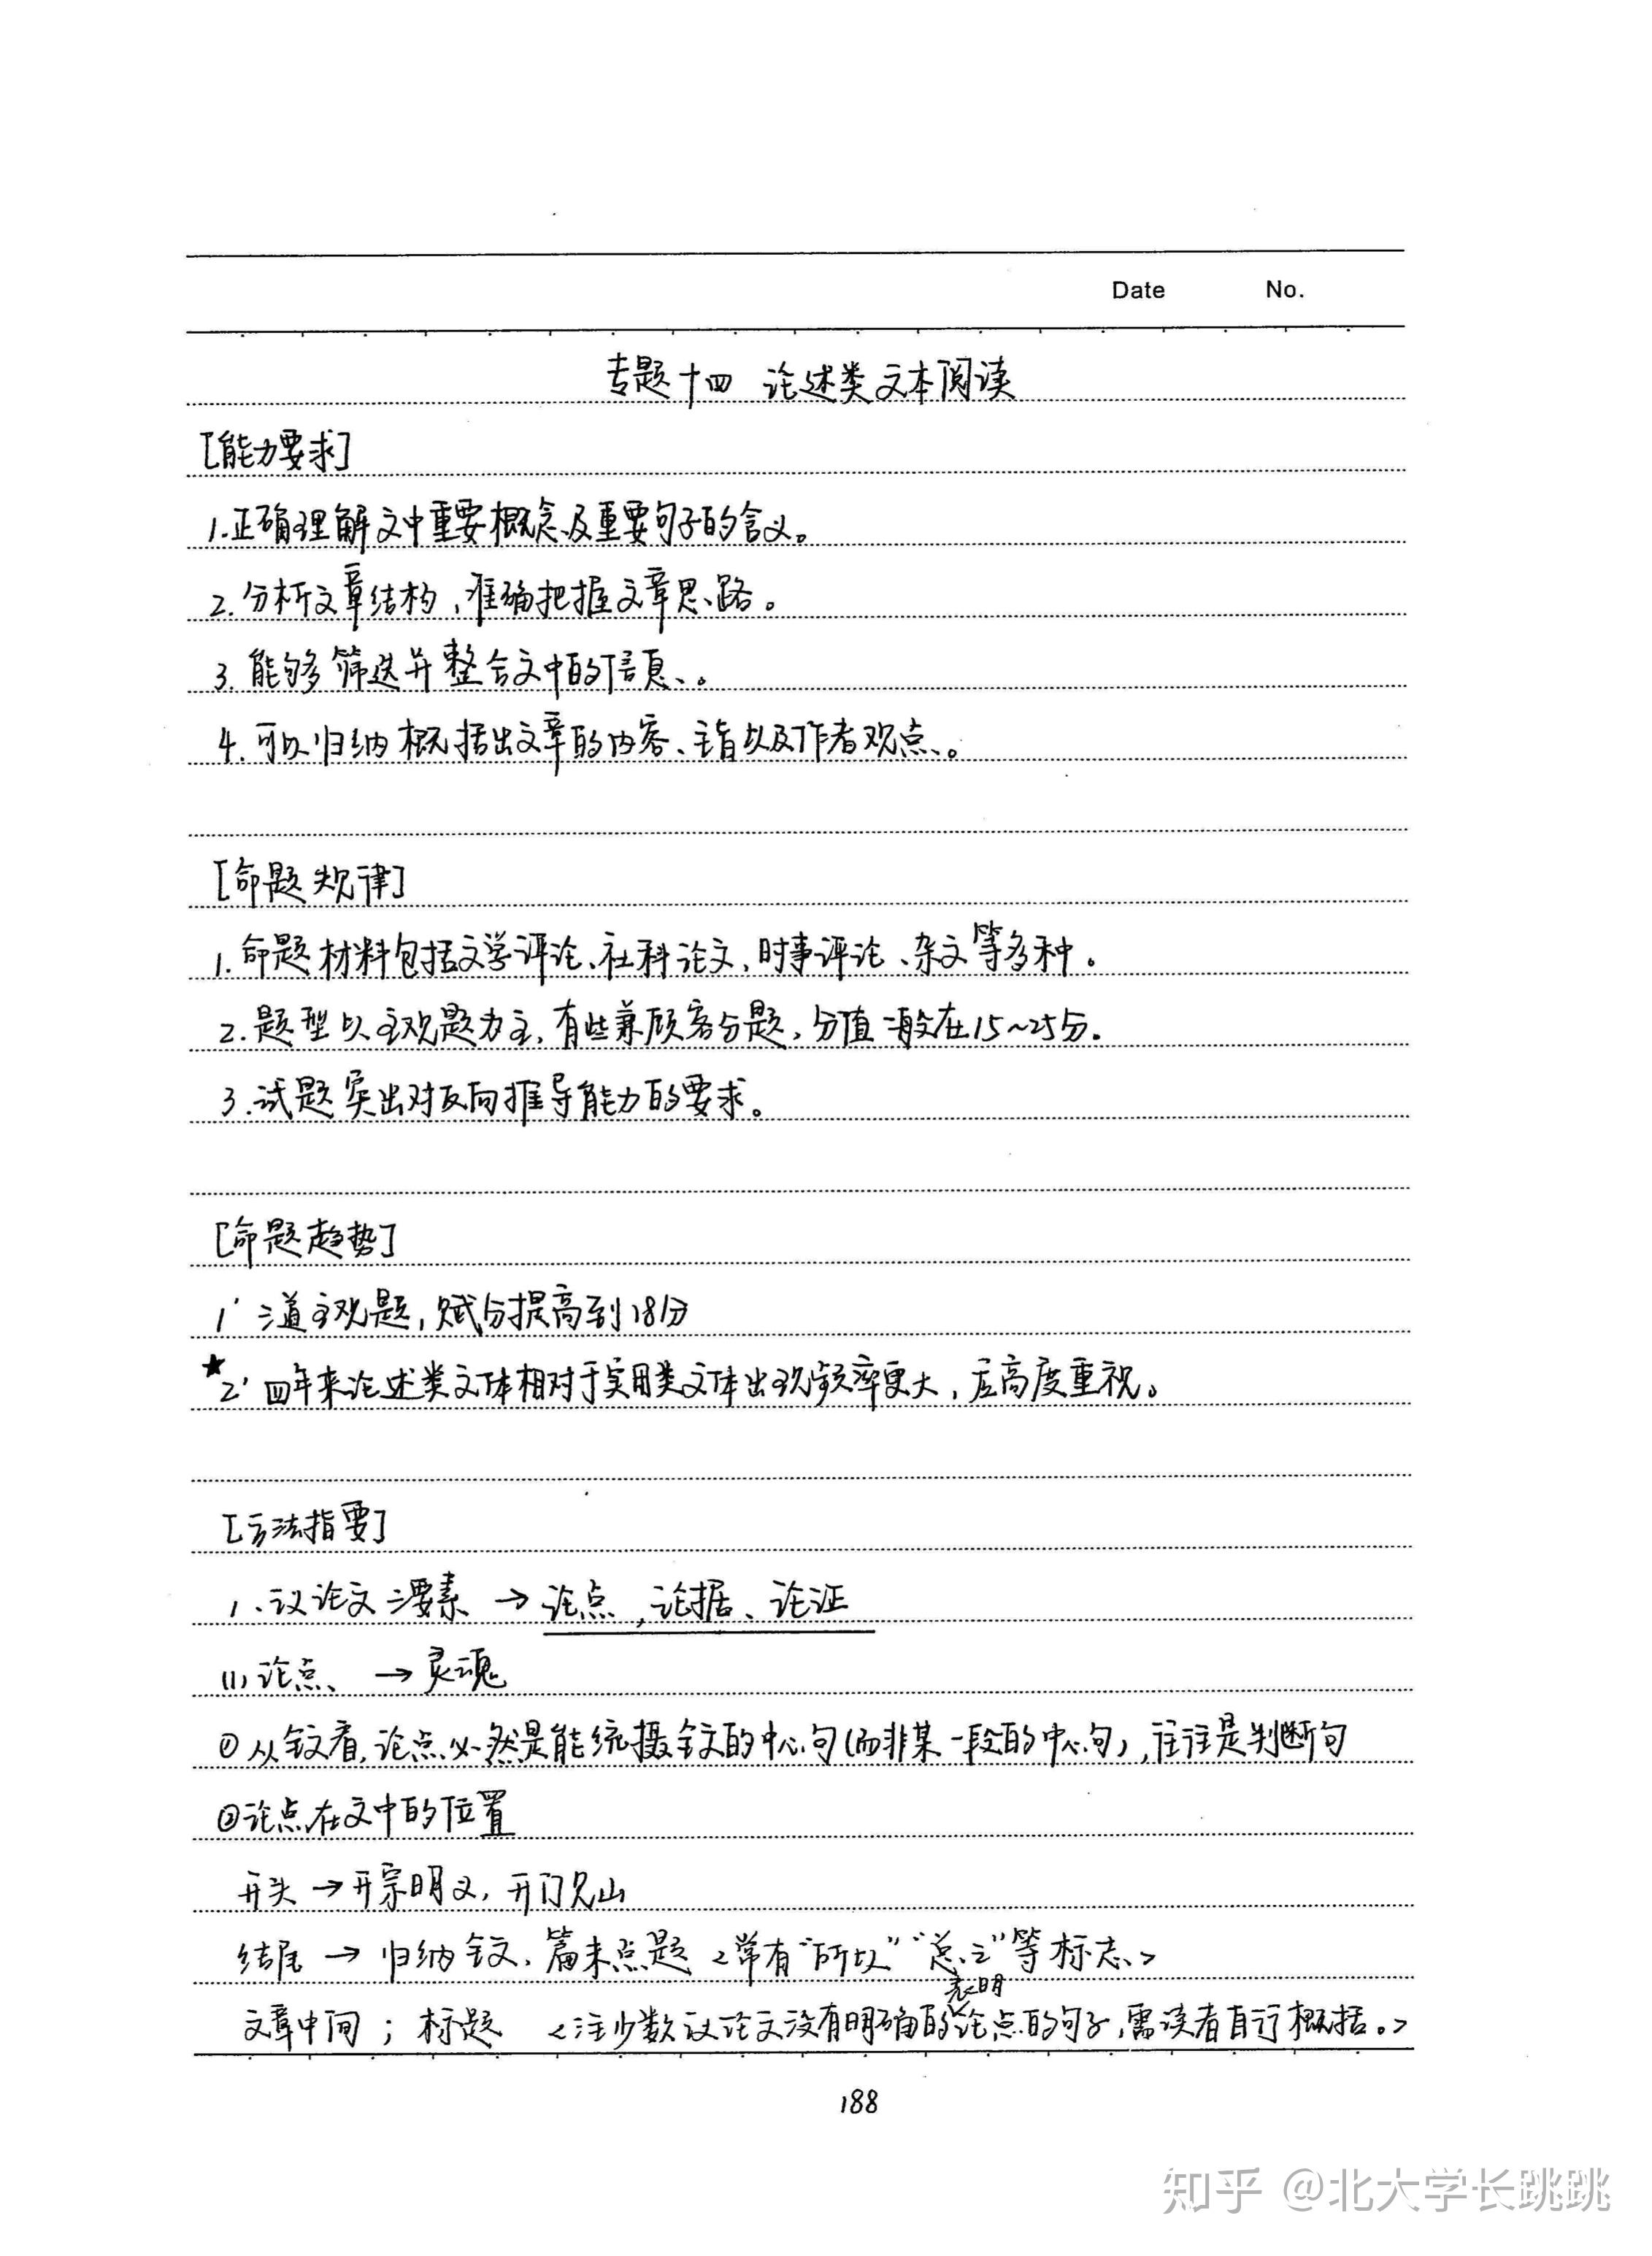 Date No.
专题十四 论述类文本阅读
[能力要求]
1.正确理解文中重要概念及重要句子的含义。
2.分析文章结构,准确把握文章思路。
3.能够筛选并整合文中的信息。
4.可以归纳概括出文章的内容、主旨以及作者观点。
[命题规律]
1.命题材料包括文学评论、社科论文、时事评论、杂文等多种。
2.题型以主观题为主,有些兼顾客观题,分值一般在15~25分。
3.试题突出对反向推导能力的要求。
[命题趋势]
1' 三道主观题,赋分提高到18分
★2' 四年来论述类文体相对于实用类文体出现频率更大,应高度重视。
[方法指要]
1.议论文三要素 → 论点,论据、论证
(1)论点 → 灵魂
①从全文看,论点必然是能统摄全文的中心句(而非某一段的中心句),往往是判断句
②论点在文中的位置
开头 → 开宗明义,开门见山
结尾 → 归纳全文,篇末点题 <常有"所以""总之"等标志>
文章中间;标题 <注少数议论文没有明确的表明论点的句子,需读者自行概括。>
188
知乎 @北大学长跳跳